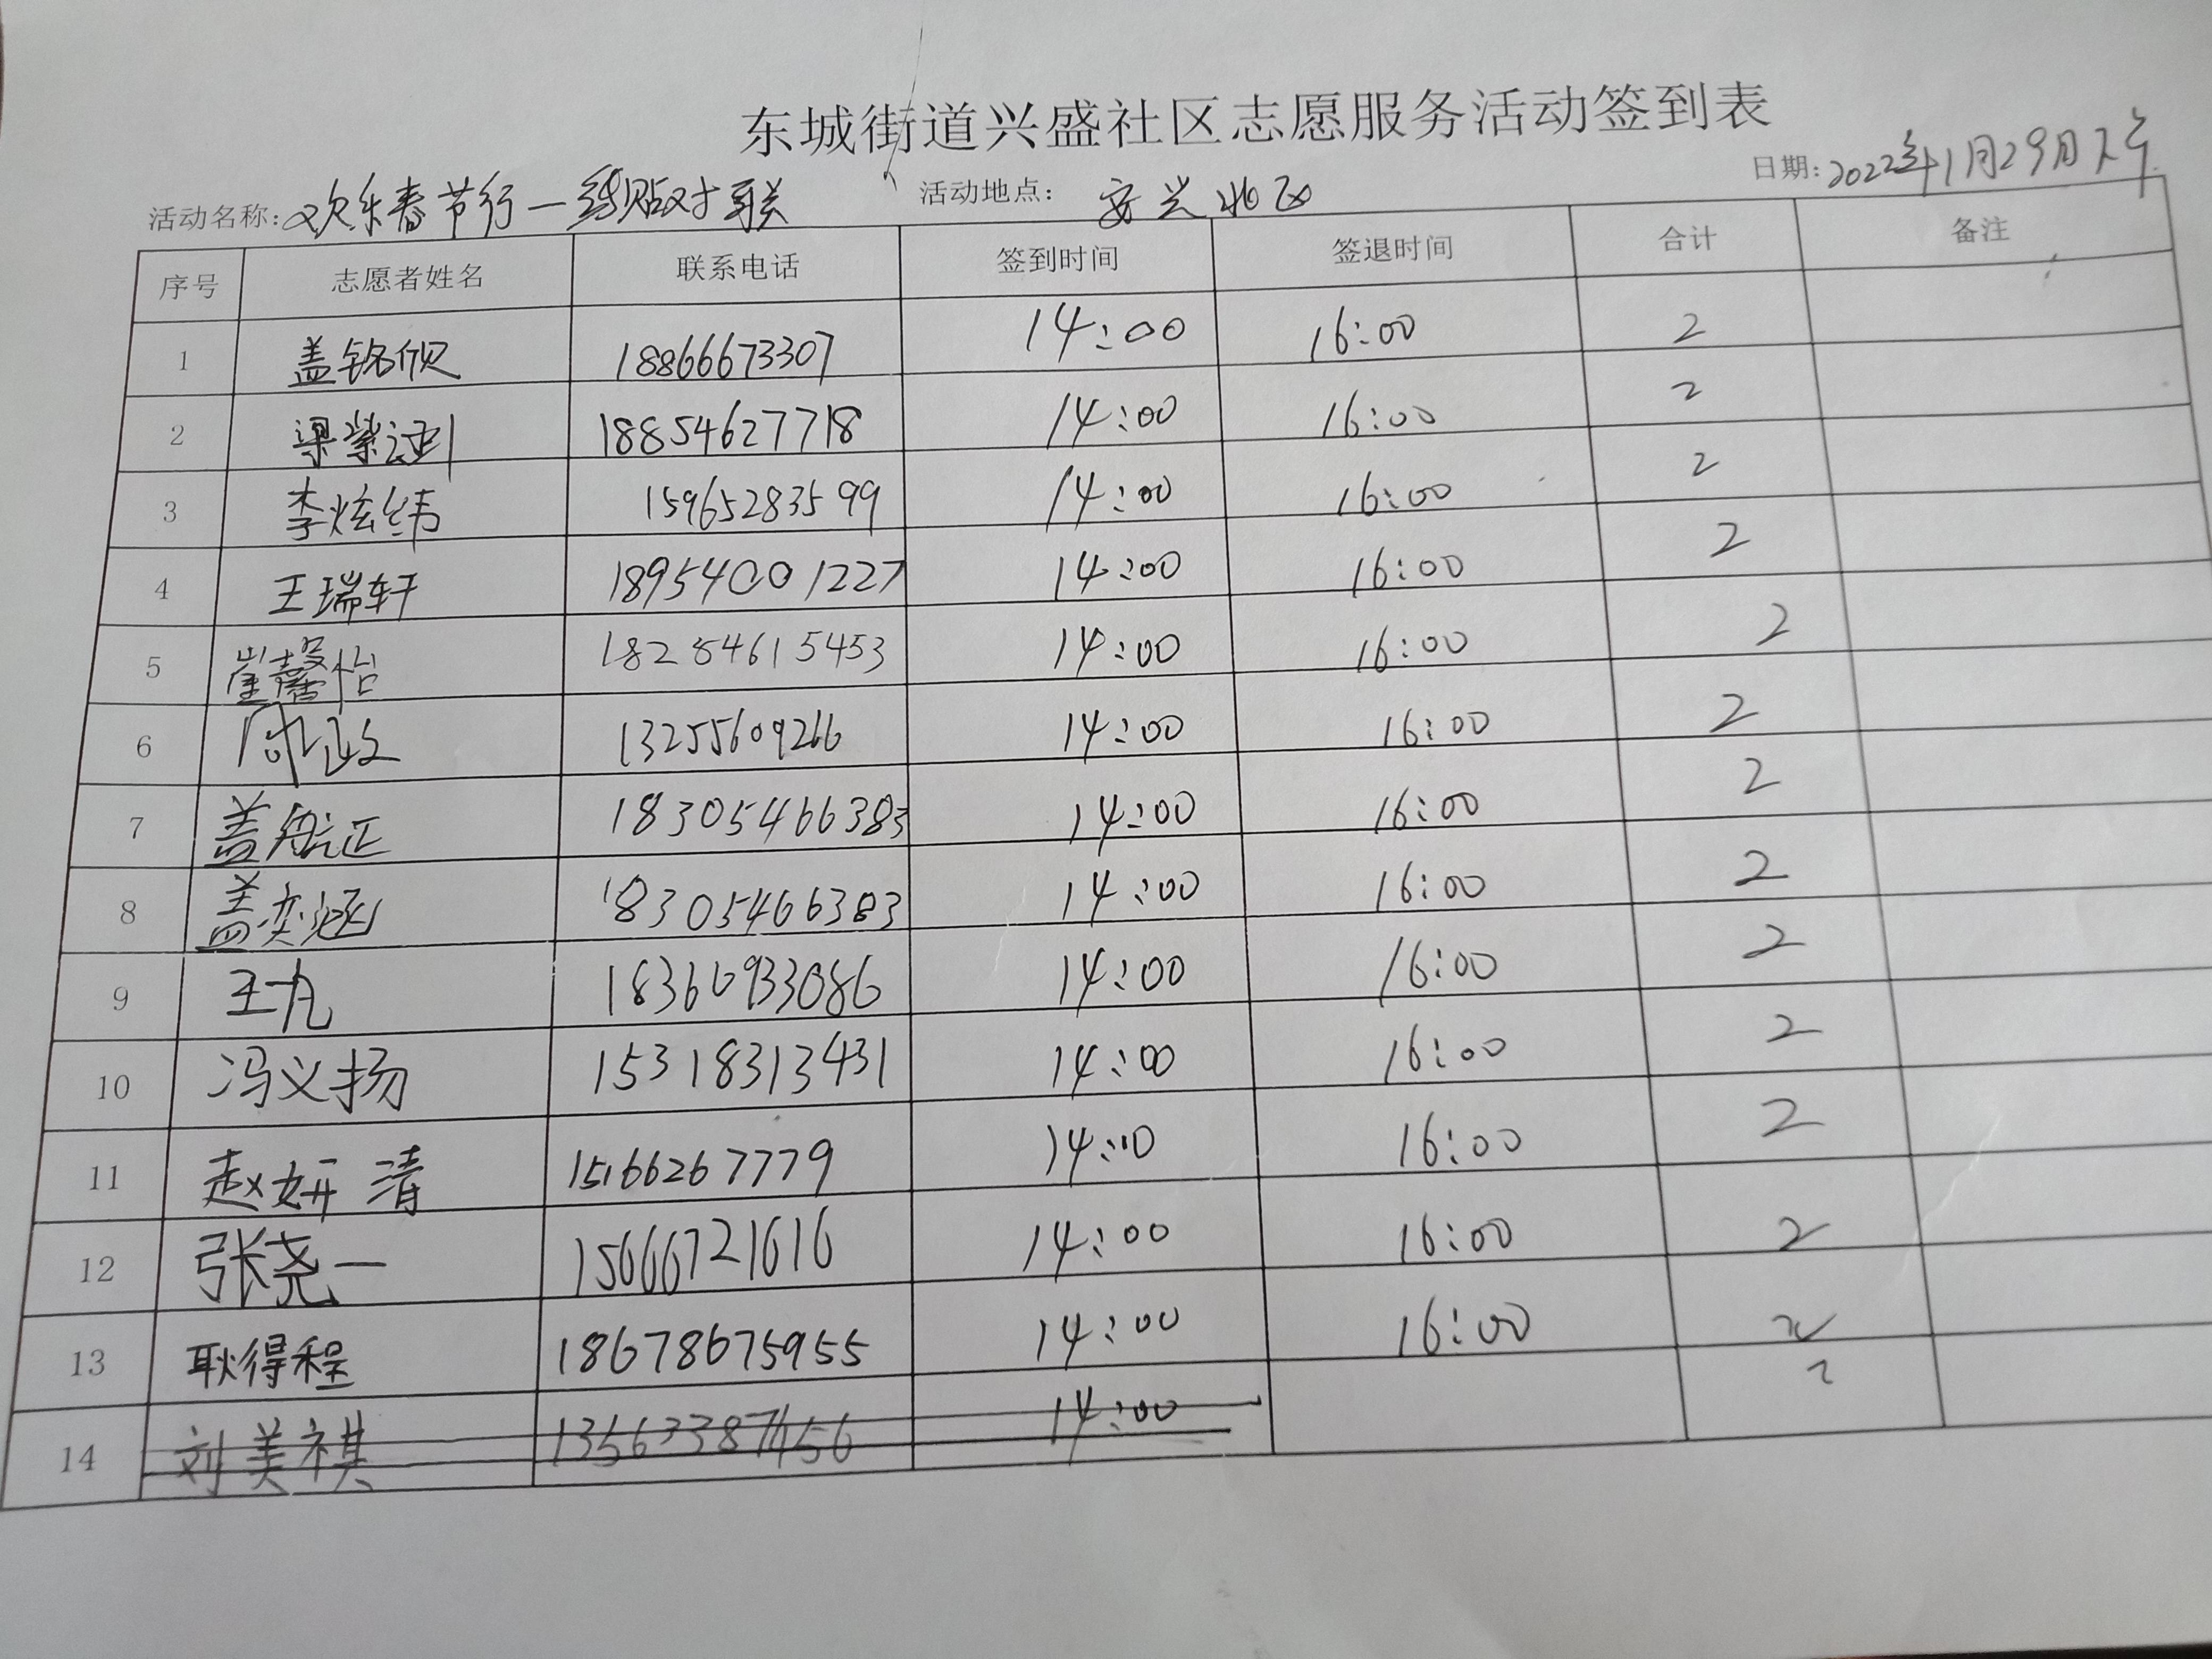 东城街道兴盛社区志愿服务活动签到表
活动名称: 欢乐春节行一 贴对联 活动地点: 安兴北区 日期: 2022年1月29日下午
序号 志愿者姓名 联系电话 签到时间 签退时间 合计 备注
1 盖铭欣 18866673307 14:00 16:00 2
2 梁 18854627718 14:00 16:00 2
3 李炫纬 15965283599 14:00 16:00 2
4 王瑞轩 18954001227 14:00 16:00 2
5 崔馨怡 18284615453 14:00 16:00 2
6 13255609266 14:00 16:00 2
7 盖航正 18305466383 14:00 16:00 2
8 盖奕涵 18305466383 14:00 16:00 2
9 王一凡 18360933086 14:00 16:00 2
10 冯义扬 15318313431 14:00 16:00 2
11 赵妍清 15166267779 14:00 16:00 2
12 张尧一 15666721616 14:00 16:00 2
13 耿得程 18678675955 14:00 16:00 2
14 刘美祺 14:00 2